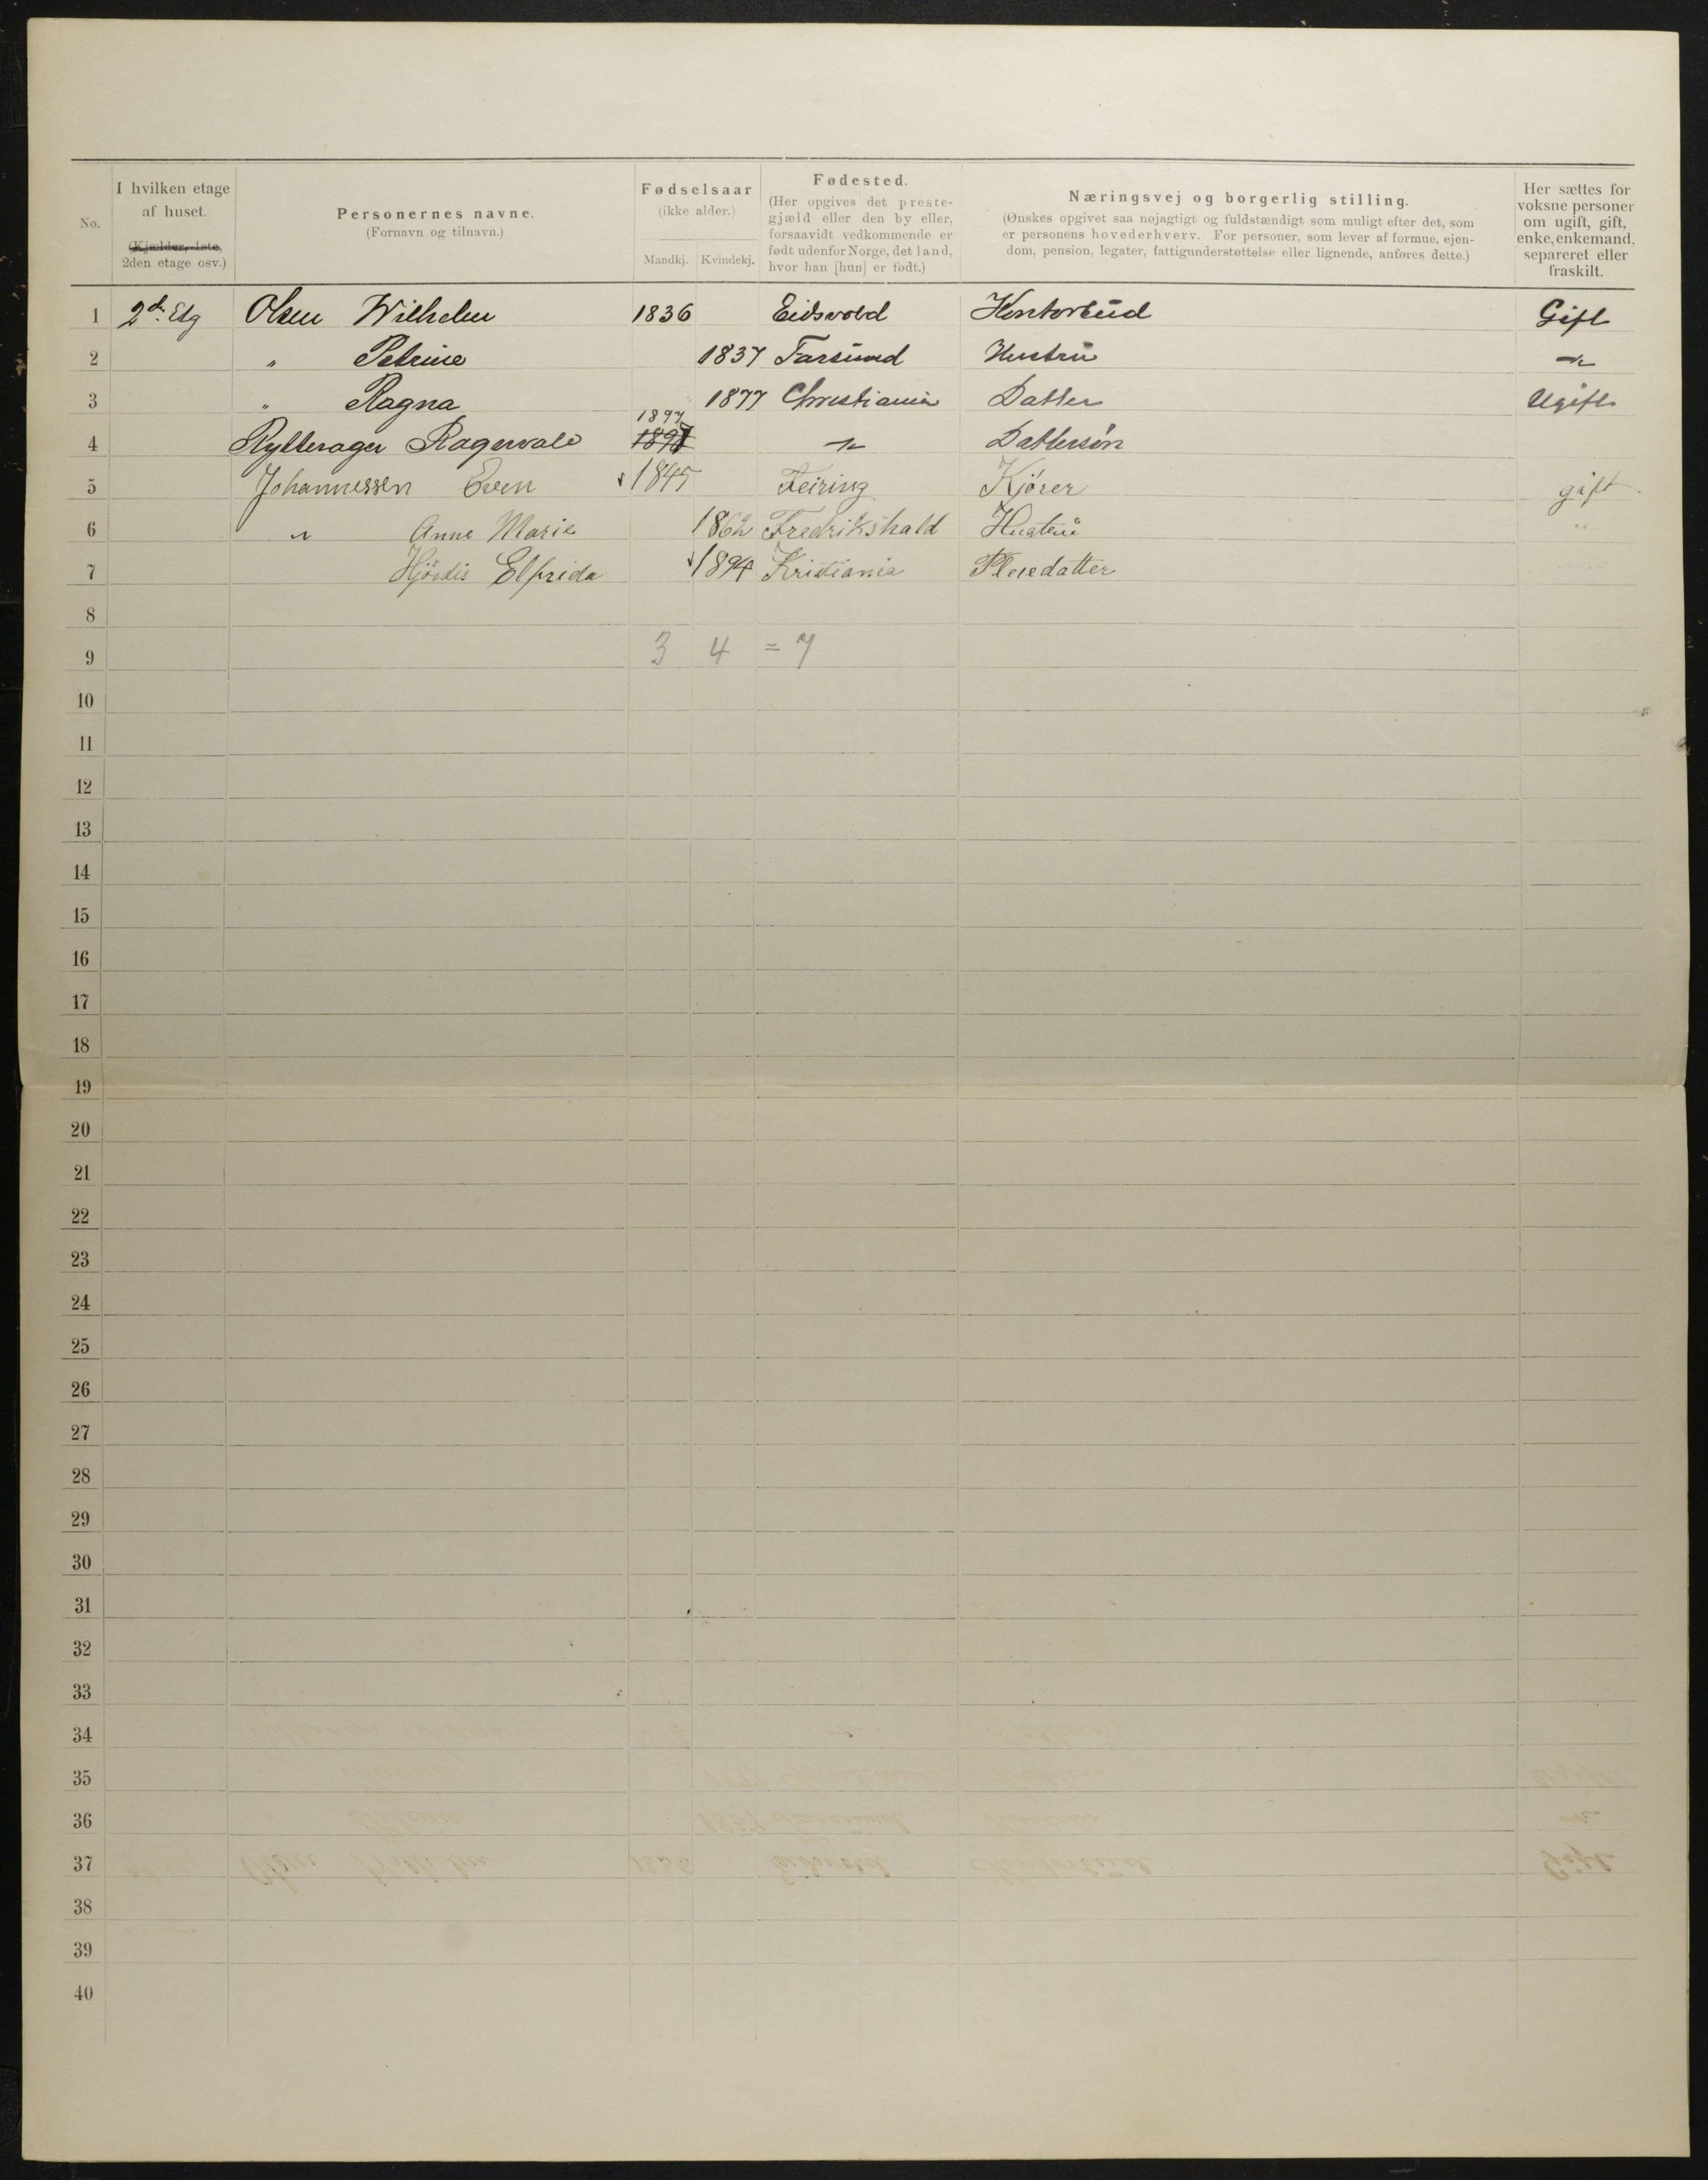 No.
I hvilken etage
af huset.
(Kjælder, 1ste,
2den etage osv.)
Personernes navne.
(Fornavn og tilnavn.)
Fødselsaar
(ikke alder.)
Mandkj. Kvindekj.
Fødested.
(Her opgives det preste-
gjæld eller den by eller,
forsaavidt vedkommende er
født udenfor Norge, det land,
hvor han [hun] er født.)
Næringsvej og borgerlig stilling.
(Ønskes opgivet saa nøjagtigt og fuldstændigt som muligt efter det, som
er personens hovederhverv. For personer, som lever af formue, ejen-
dom, pension, legater, fattigunderstøttelse eller lignende, anføres dette.)
Her sættes for
voksne personer
om ugift, gift,
enke, enkemand,
separeret eller
fraskilt.
1 2d. Etg Olsen Wilhelm 1836 Eidsvold Kontorbud Gift
2 " Petrine 1837 Farsund Hustru "
3 " Ragna 1877 Christiania Datter Ugift
1897
4 Rytterager Ragnvald 1897 " Dattersøn
5 Johannessen Even 1845 Feiring Kjører gift
6 " Anne Marie 1862 Fredrikshald Hustru "
7 Hjördis Elfrida 1894 Kristiania Pleiedatter
8
9 3 4 = 7
10
11
12
13
14
15
16
17
18
19
20
21
22
23
24
25
26
27
28
29
30
31
32
33
34
35
36
37
38
39
40